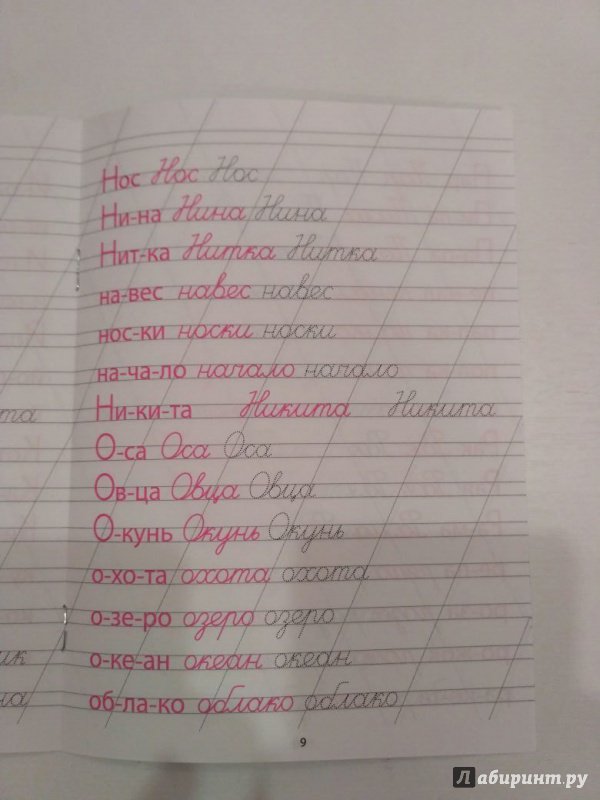 Нос Нос Нос
Ни-на Нина Нина
Нит-ка Нитка Нитка
на-вес навес навес
нос-ки носки носки
на-ча-ло начало начало
Ни-ки-та Никита Никита
О-са Оса Оса
Ов-ца Овца Овца
О-кунь Окунь Окунь
о-хо-та охота охота
о-зе-ро озеро озеро
о-ке-ан океан океан
об-ла-ко облако облако
9
Лабиринт.ру